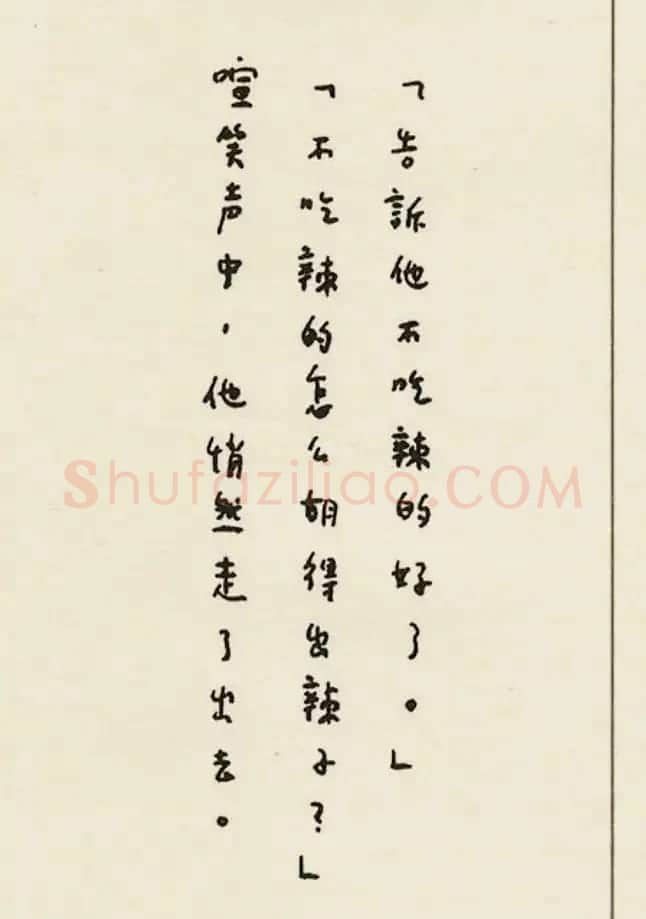 「告訴他不吃辣的好了。」
「不吃辣的怎么胡得出辣子？」
喧笑声中，他悄然走了出去。
Shufaziliao.COM